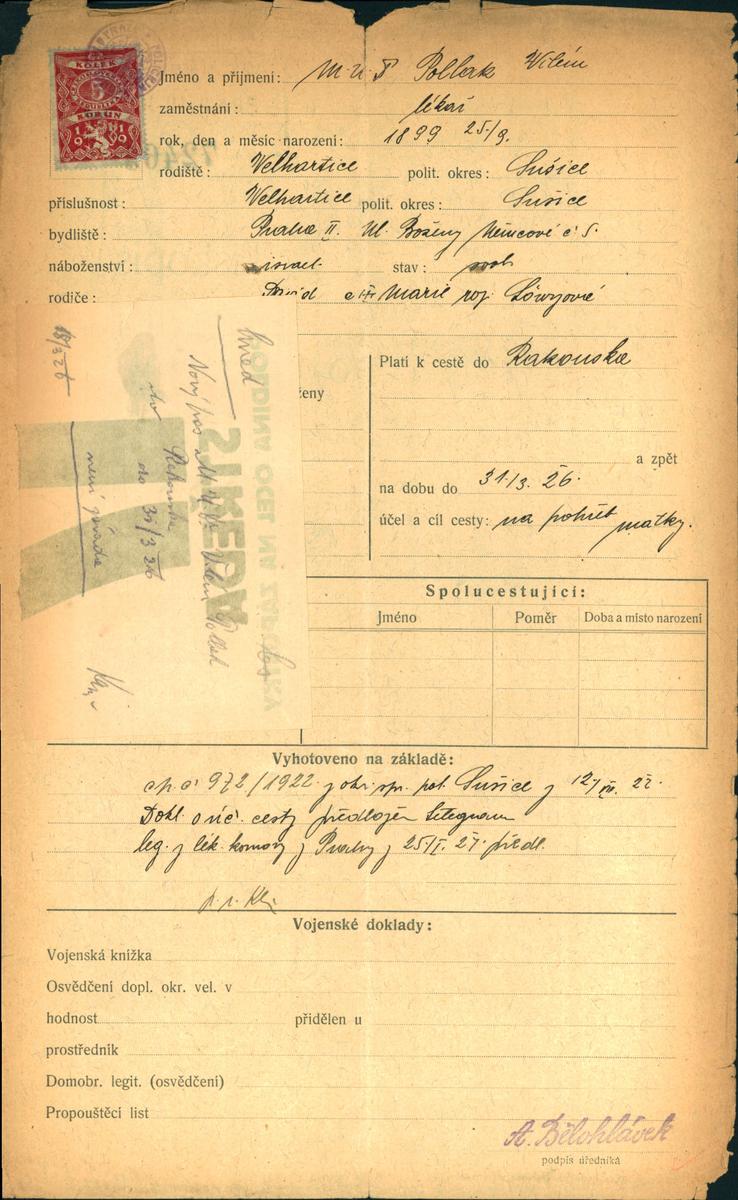 KOLEK
5
KORUN
1919
Jméno a příjmení: M.U.D Pollak Vilém
zaměstnání: lékař
rok, den a měsíc narození: 1899 25./9.
rodiště: Velhartice polit. okres: Sušice
příslušnost: Velhartice polit. okres: Sušice
bydliště: Praha II. Ul. Boženy Němcové č 5.
náboženství: israel. stav: svob
rodiče: David a Marie roz. Löwyové
ženy
Platí k cestě do Rakouska
a zpět
na dobu do 31./3. 26.
účel a cíl cesty: na pohřeb matky.
Spolucestující:
Jméno Poměr Doba a místo narození
ihned
Nový pas M.U.Dr. Vilém Pollak
do Rakouska
do 31/3 26
není závada
18/3 26
Vyhotoveno na základě:
čp. č 972/1922 z okr. spr. pol. Sušice z 12/ 22.
Dokl. o úč. cesty předložen telegram
leg. z lék. komory z Prahy z 25/I. 27. předl.
Vojenské doklady:
Vojenská knížka
Osvědčení dopl. okr. vel. v
hodnost přidělen u
prostředník
Domobr. legit. (osvědčení)
Propouštěcí list
A. Bělohlávek
podpis úředníka